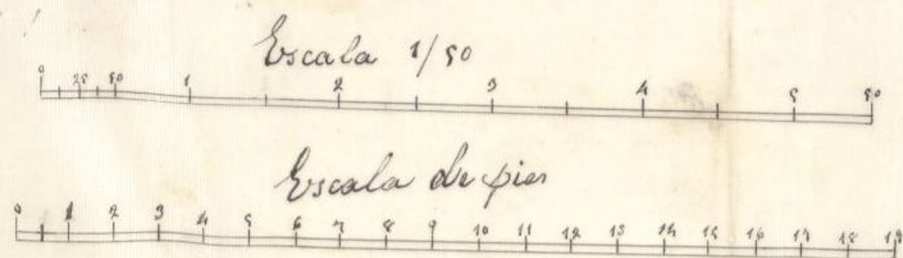 Escala 1/50
0 25 50 1 2 3 4 5 50
Escala de pies
0 1 2 3 4 5 6 7 8 9 10 11 12 13 14 15 16 17 18 19